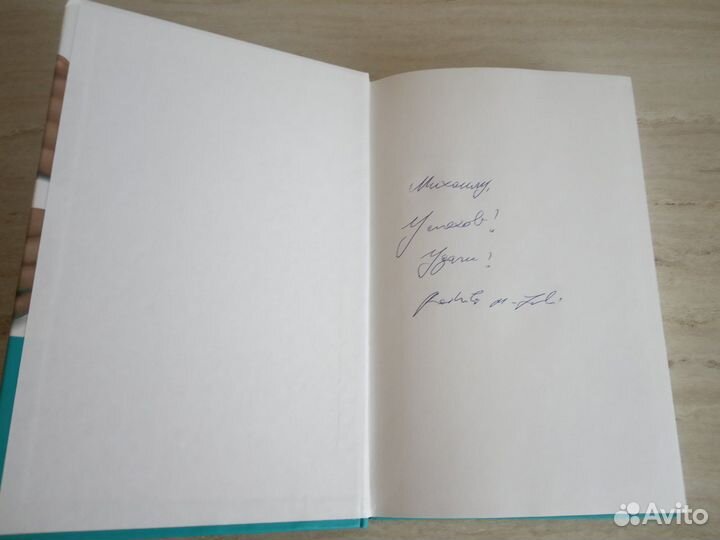 Михаилу,
Успехов!
Удачи!
Avito